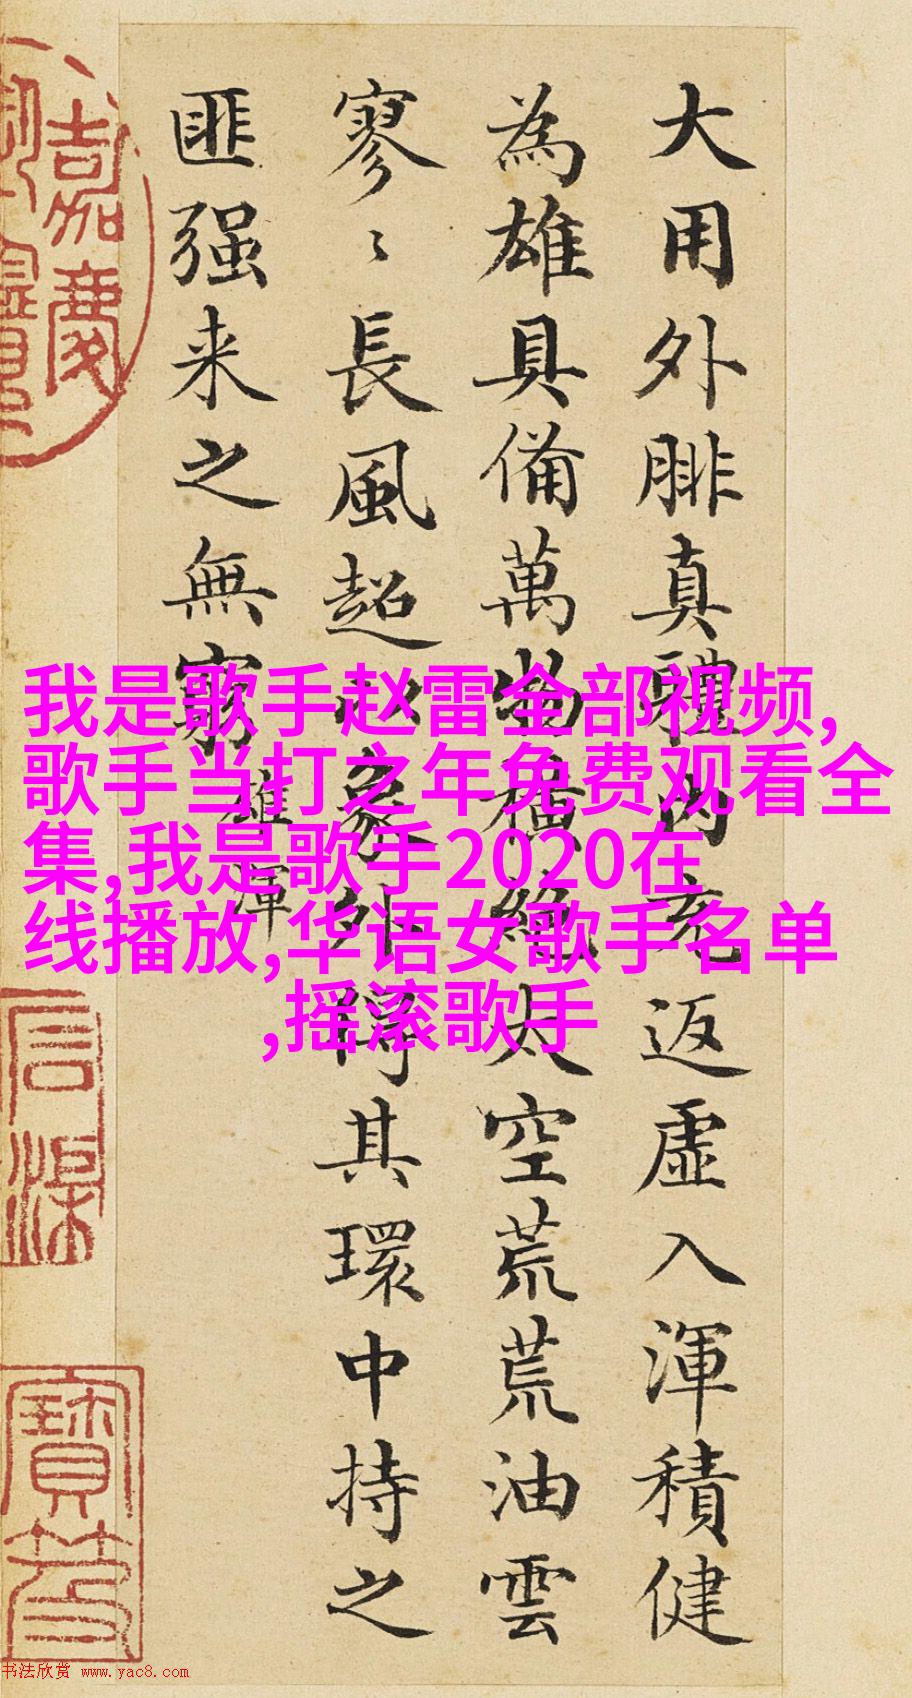 大用外腓真體内充返虛入渾積健
為雄具備萬物橫絕太空荒荒油雲
寥〻長風超以象外得其環中持之
匪强来之無窮
雄渾
我是歌手赵雷全部视频,
歌手当打之年免费观看全
集,我是歌手2020在
线播放,华语女歌手名单
,摇滚歌手
嘉慶
寶笈
书法欣赏 www.yac8.com